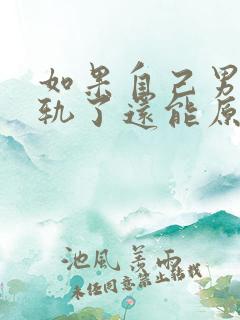 如果自己男
轨了还能原
池风善雨
未经同意禁止转载